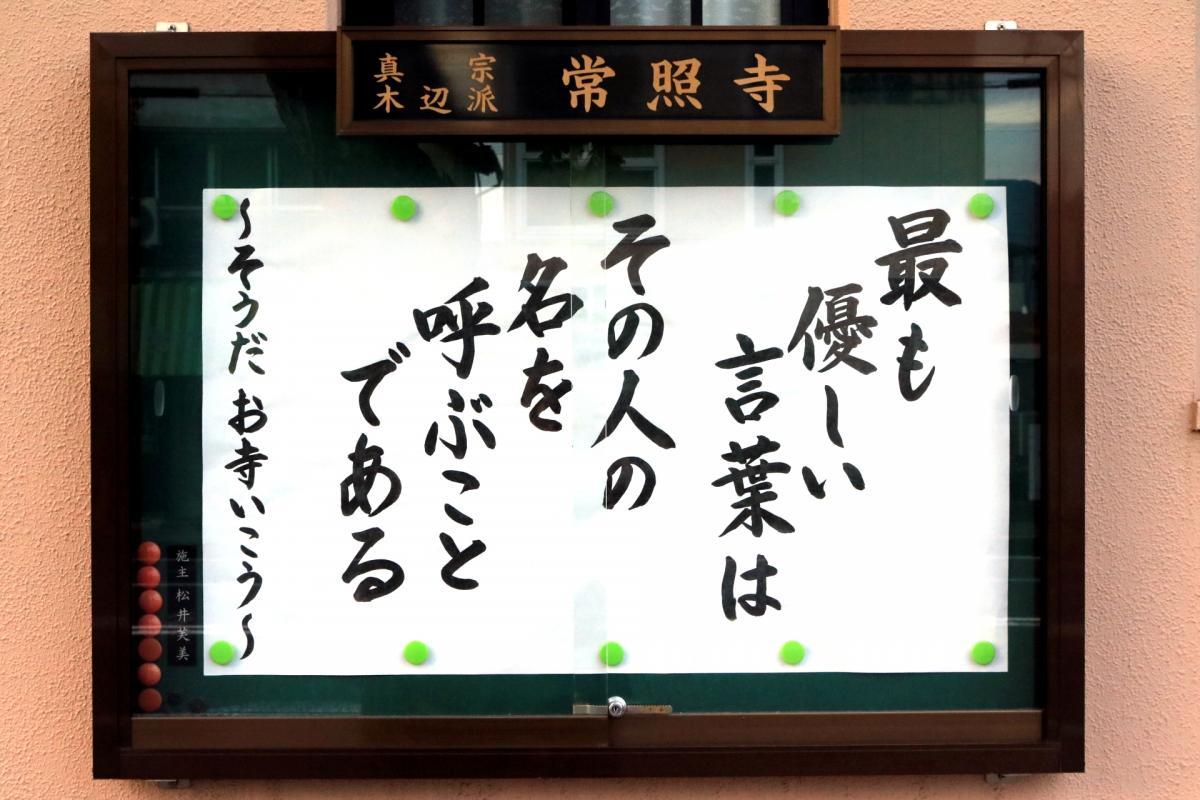 真宗
木辺派
常照寺
最も
優しい
言葉は
その人の
名を
呼ぶこと
である
～そうだ お寺いこう～
施主 松井芙美